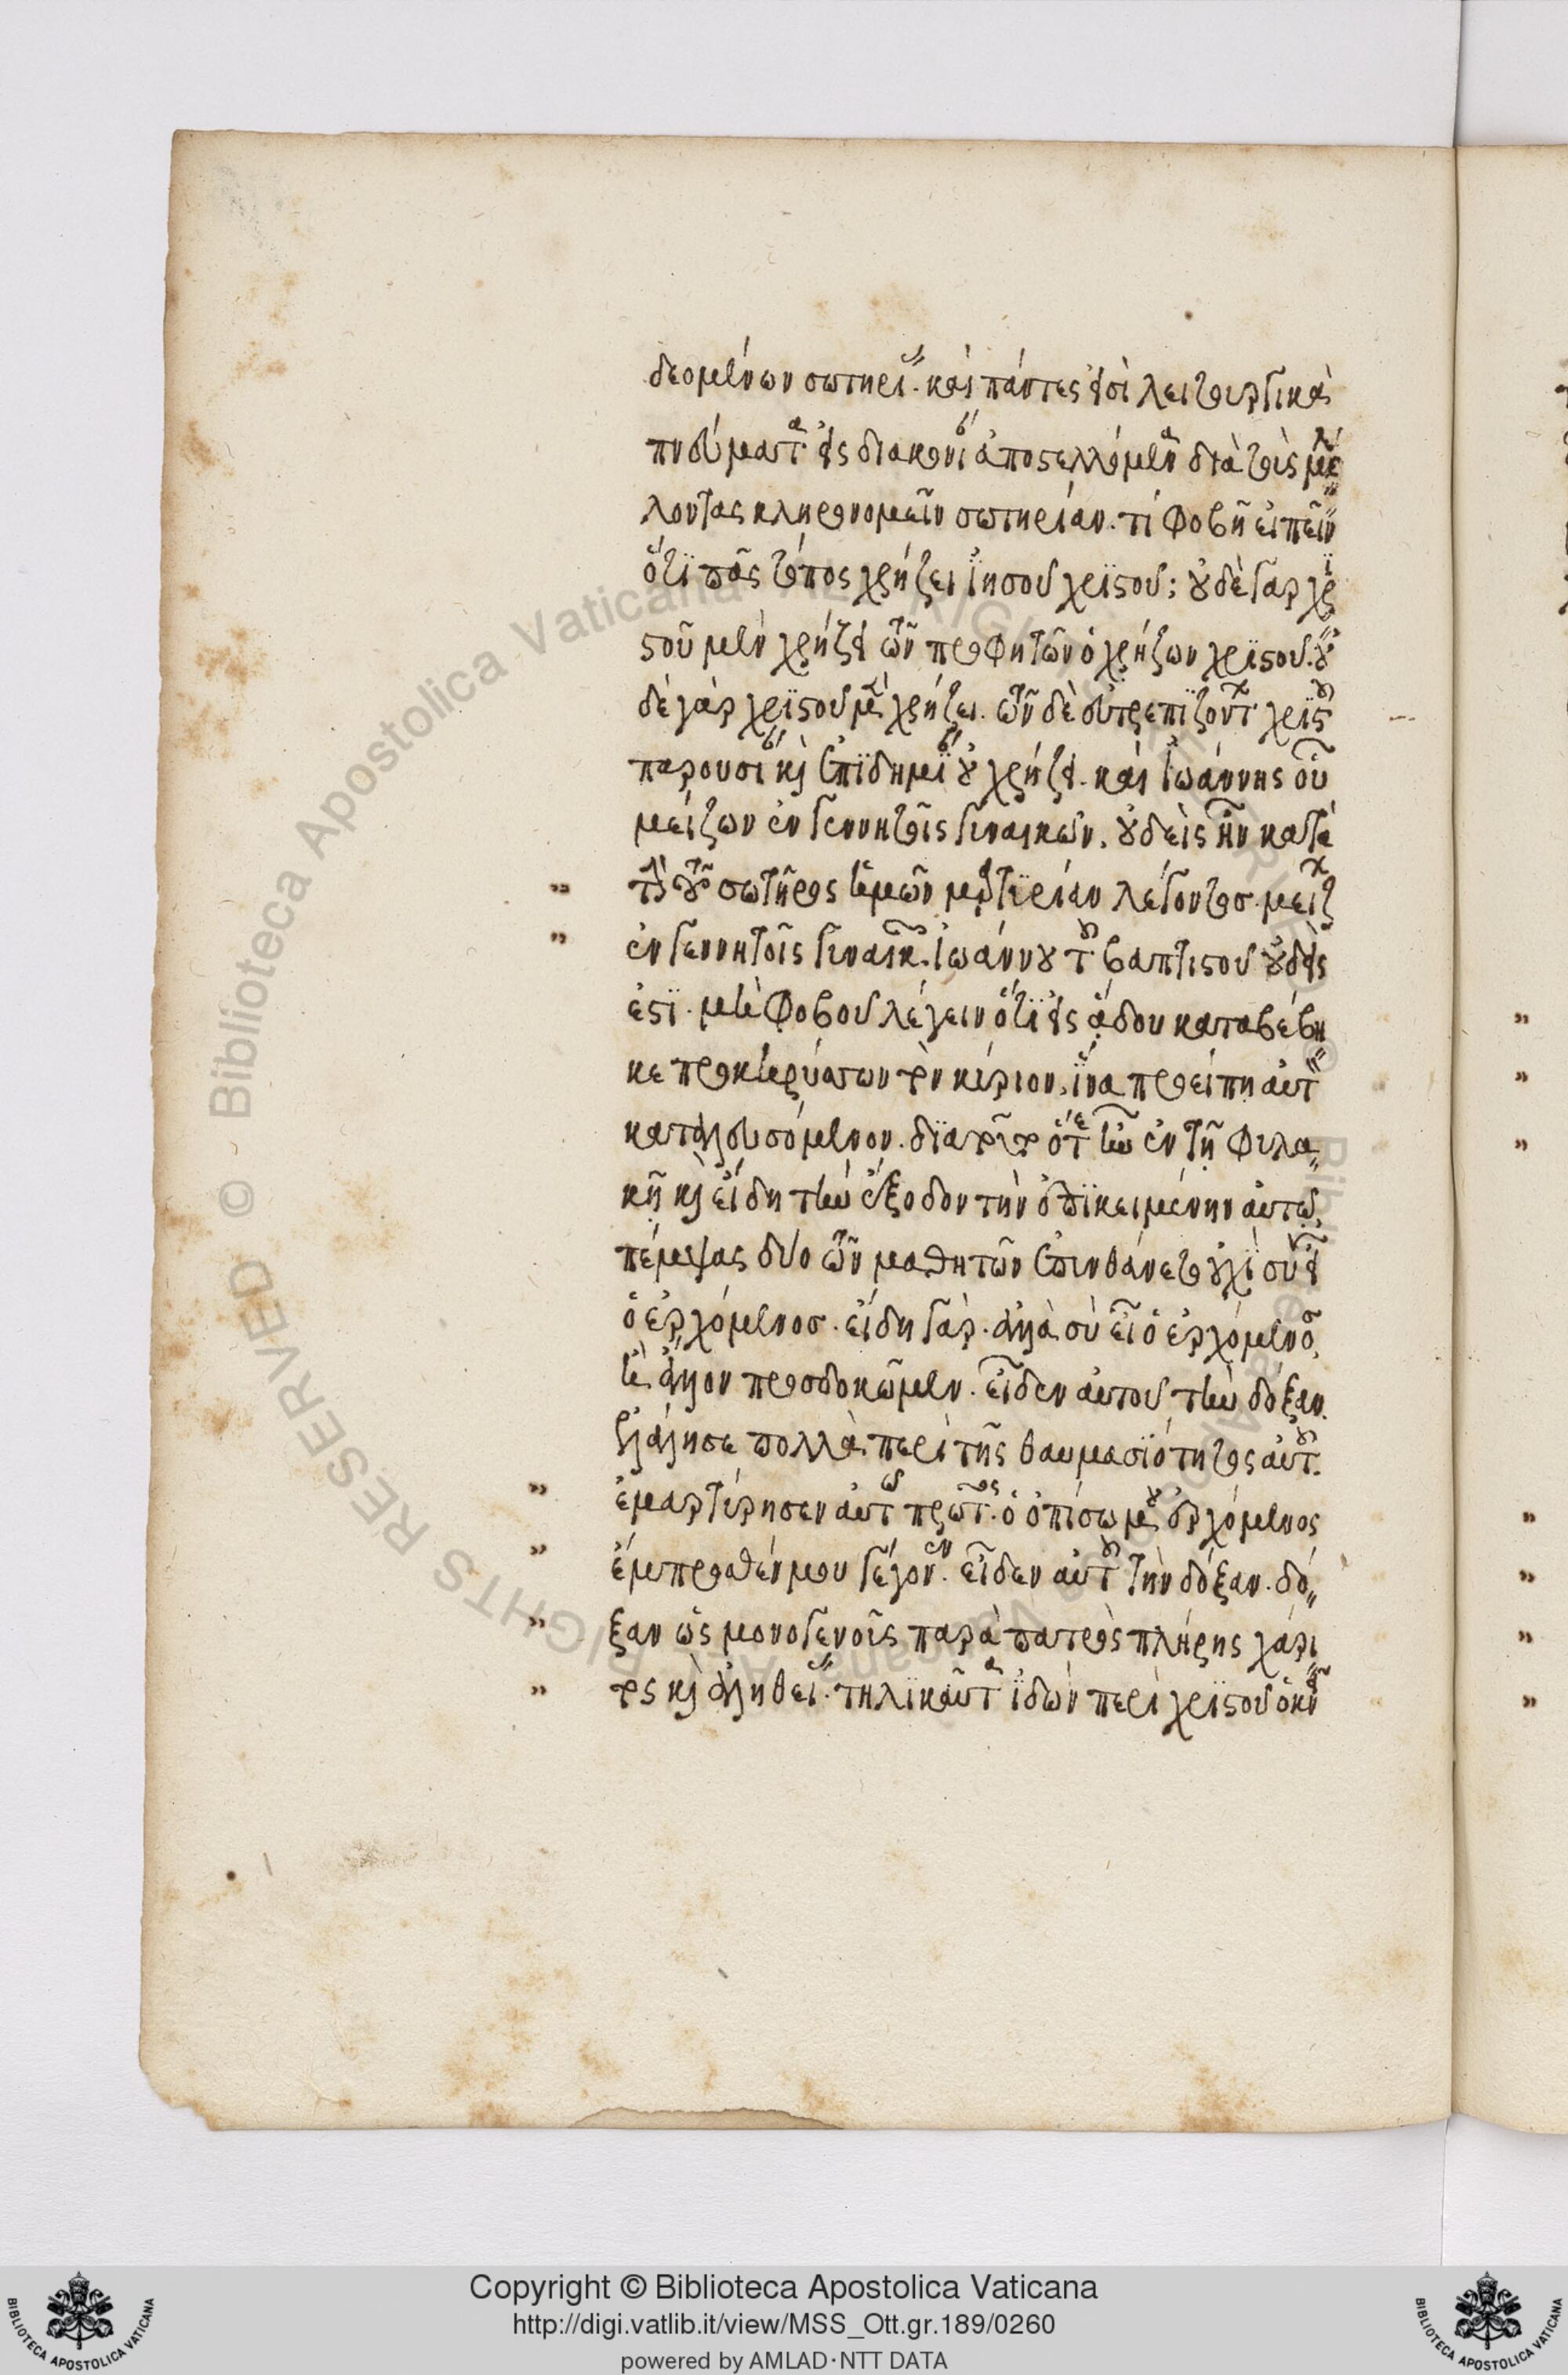 δεομένων σωτηρίας. καὶ πάντες εἰσὶ λειτουργικὰ
πνεύματα εἰς διακονίαν ἀποστελλόμενα διὰ τοὺς μέλ
λοντας κληρονομεῖν σωτηρίαν. τί φοβῇ εἰπεῖν
ὅτι πᾶς τόπος χρῄζει ἰησοῦ χριστοῦ; οὐδὲ γὰρ χρι
στοῦ μὲν χρῄζει τῶν προφητῶν ὁ χρῄζων χριστοῦ. οὐ
δὲ γὰρ χριστοῦ μὲν χρῄζει. τῶν δὲ εὐτρεπιζόντων χριστοῦ
παρουσίαν καὶ ἐπιδημίαν οὐ χρῄζει. καὶ ἰωάννης οὗ
μείζων ἐν γεννητοῖς γυναικῶν, οὐδεὶς ἦν κατὰ
τὴν τοῦ σωτῆρος ἡμῶν μαρτυρίαν λέγοντος. μείζων
ἐν γεννητοῖς γυναικῶν ἰωάννου τοῦ βαπτιστοῦ οὐδείς
ἐστι. μὴ φοβοῦ λέγειν ὅτι εἰς ᾅδου καταβέβη
κε προκηρύσσων τὸν κύριον, ἵνα προείπῃ αὐτὸν
κατελευσόμενον. διὰ τοῦτο ὅτε ἦν ἐν τῇ φυλα
κῇ καὶ εἴδη τὴν ἔξοδον τὴν ἐπικειμένην αὐτῷ
πέμψας δύο τῶν μαθητῶν ἐπυνθάνετο οὐχὶ σὺ εἶ
ὁ ἐρχόμενος. εἴδη γάρ. ἀλλὰ σὺ εἶ ὁ ἐρχόμενος,
ἢ ἄλλον προσδοκῶμεν. εἶδεν αὐτοῦ τὴν δόξαν.
ἐλάλησε πολλὰ περὶ τῆς θαυμασιότητος αὐτοῦ.
ἐμαρτύρησεν αὐτῷ πρῶτος. ὁ ὀπίσω μου ἐρχόμενος
ἔμπροσθέν μου γέγονεν. εἶδεν αὐτοῦ τὴν δόξαν. δό
ξαν ὡς μονογενοῦς παρὰ πατρὸς πλήρης χάρι
τος καὶ ἀληθείας. τηλικαῦτα ἰδὼν περὶ χριστοῦ ὀκνεῖ
Copyright © Biblioteca Apostolica Vaticana
http://digi.vatlib.it/view/MSS_Ott.gr.189/0260
powered by AMLAD·NTT DATA